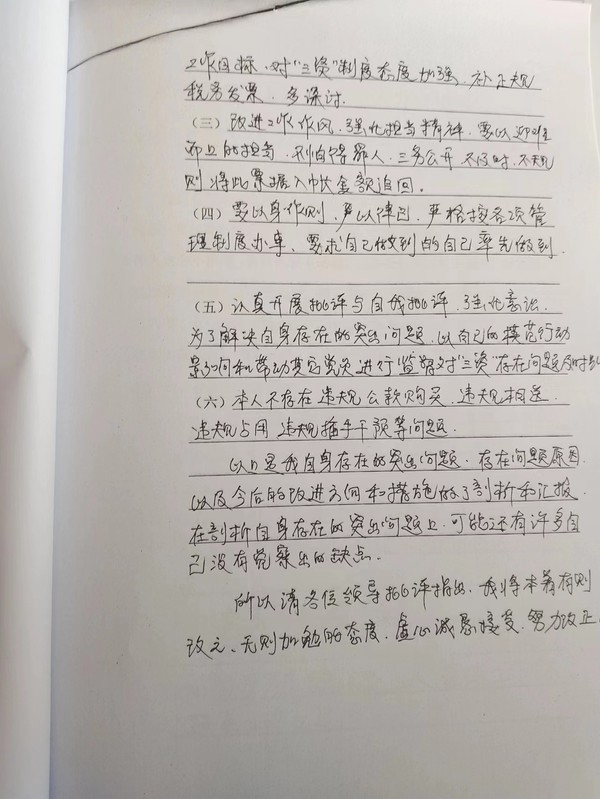 工作目标，对“三资”制度态度加强，补正规
税务发票，多探讨.
（三）改进工作作风，强化担当精神，要以迎难
而上的担当，不怕得罪人，三务公开不及时、不规
则将此票据入帐金额追回。
（四）要以身作则，严以律己，严格按各项管
理制度办事、要求自己做到的自己率先做到.
（五）认真开展批评与自我批评，强化意识，
为了解决自身存在的突出问题，以自己的模范行动
影响和带动其它党员进行“监督”对“三资”存在问题及时
（六）本人不存在违规公款购买，违规相送
违规占用 违规插手干预等问题.
以上是我自身存在的突出问题，存在问题原因
以及今后的改进方向和措施做了剖析和汇报
在剖析自身存在的突出问题上，可能还有许多自
己没有觉察出的缺点.
所以请各位领导批评指出，我将本着有则
改之、无则加勉的态度，虚心诚恳接受，努力改正.